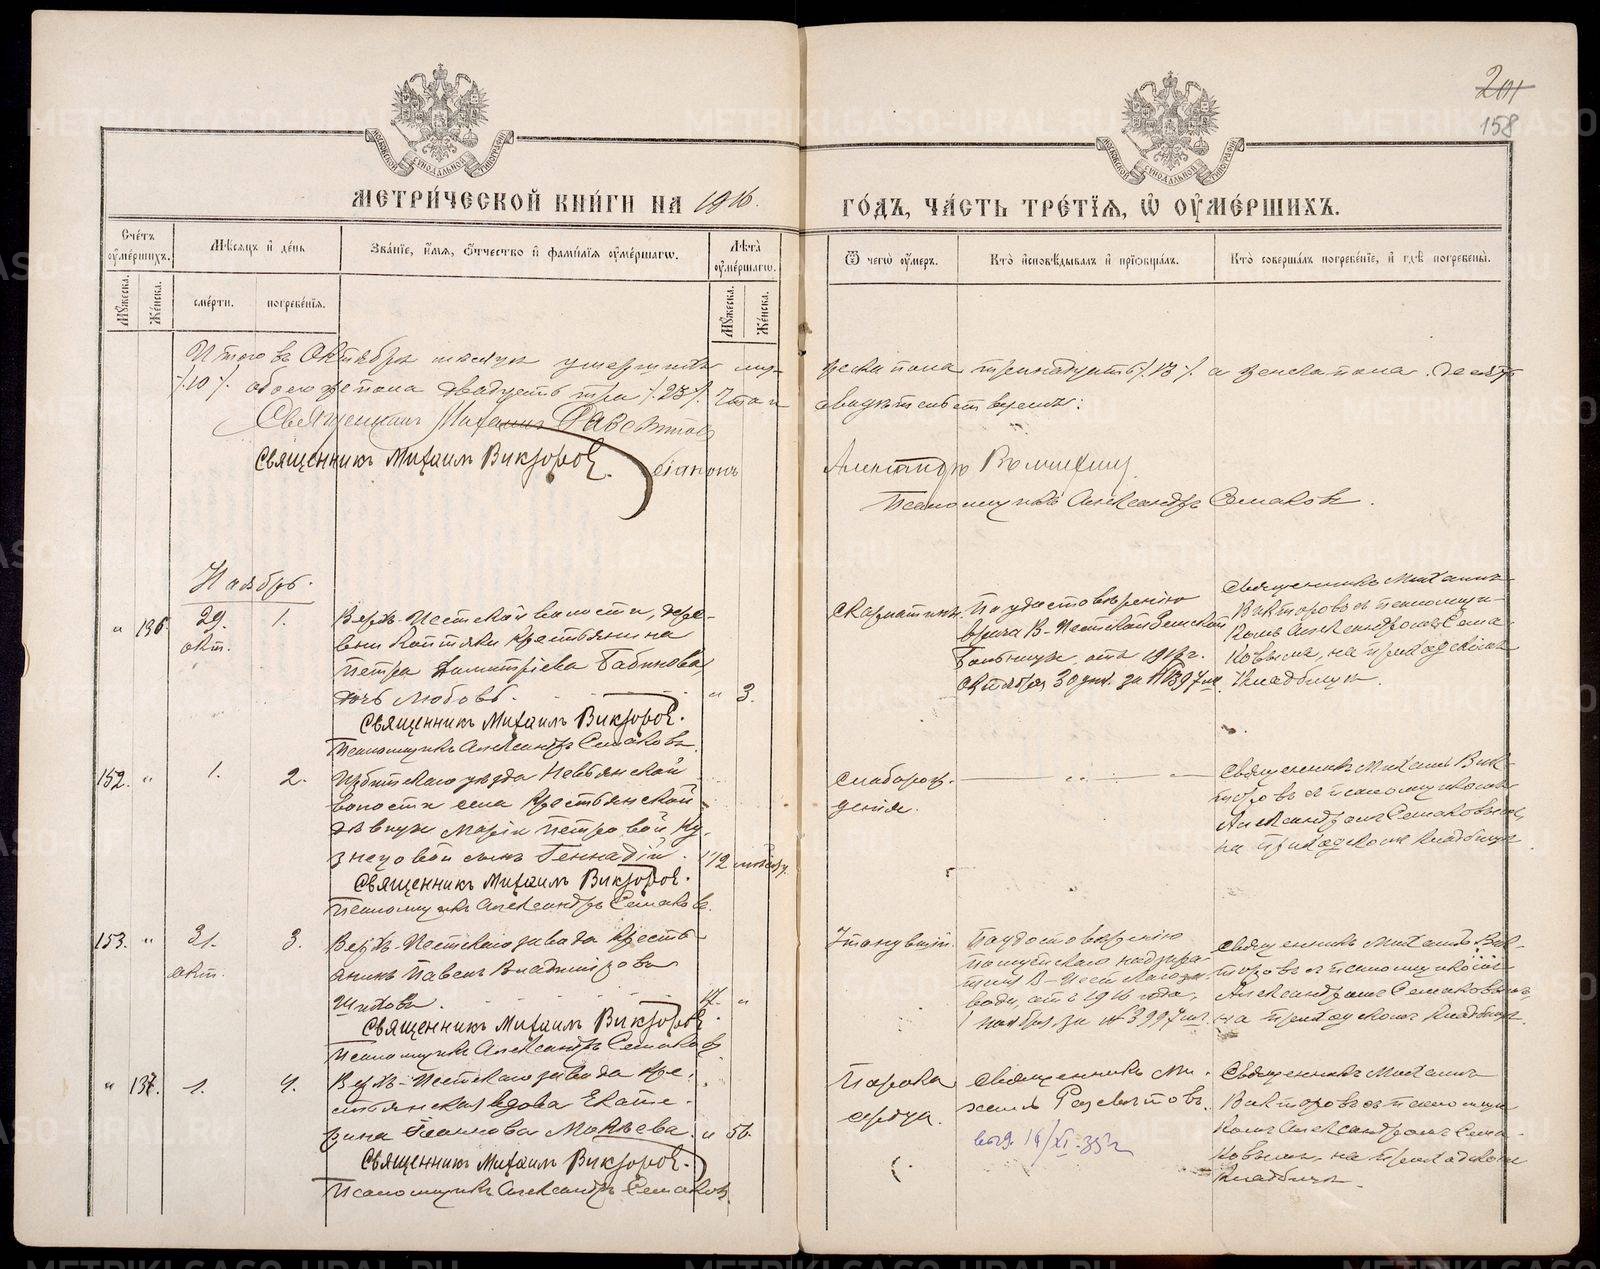 201
158
МОСКОВСКОЙ СѴНОДАЛЬНОЙ ТИПОГРАФІИ
МОСКОВСКОЙ СѴНОДАЛЬНОЙ ТИПОГРАФІИ
МЕТРИ́ЧЕСКОЙ КНИ́ГИ НА 1916. ГО́ДЪ, ЧА́СТЬ ТРЕ́ТІѦ, Ѽ ОУМЕ́РШИХЪ.
Сче́тъ оуме́ршихъ.
Мꙋжеска.
Же́нска.
Мѣсяцъ и де́нь
сме́рти.
погребе́нїѧ.
Зва́нїе, и́мѧ, ѻ́тчество и фами́лїѧ оуме́ршагѡ.
Лѣта̀ оуме́ршагѡ.
Мꙋжеска.
Же́нска.
Ѿ чегѡ̀ оу́меръ.
Кто̀ исповѣ́дывалъ и прїѡбща́лъ.
Кто̀ соверша́лъ погребе́нїе, и гдѣ̀ погребены̀.
Итого въ Октябрѣ мѣсяцѣ умершихъ муж-
ска пола тринадцать /.13/. а женска пола десять
/.10/. обоего пола двадцать три /.23/. Что и
свидѣтельствуемъ:
Священникъ Михаилъ
Священникъ Михаилъ Викторовъ.
Діаконъ
Александръ
Псаломщикъ Александръ Семаковъ.
Ноябрь.
" 136. 29. окт. 1.
Верхъ-Исетской волости, дерев-
ни Коптяки крестьянина
Петра Димитріева Бабинова
дочь Любовь. " 3.
Священникъ Михаилъ Викторовъ.
Псаломщикъ Александръ Семаковъ.
Скарлатина.
По удостовѣренію
врача В-Исетской Земской
Больницы отъ 1916 г.
Октября 30 дня за №
Священникъ Михаилъ
Викторовъ съ псаломщи-
комъ Александромъ Сема-
ковымъ, на приходскомъ
кладбищѣ.
152. " 1. 2.
Ирбитскаго уѣзда Невьянской
волости села крестьянской
дѣвицы Маріи Петровой Ку-
знецовой сынъ Геннадій. 1/2
Священникъ Михаилъ Викторовъ.
Псаломщикъ Александръ Семаковъ.
Слаборож-
денія.
Священникъ Михаилъ Вик-
торовъ съ псаломщикомъ
Александромъ Семаковымъ,
на приходскомъ кладбищѣ.
153. " 31. окт. 3.
Верхъ-Исетскаго завода кресть-
янинъ Павелъ Владиміровъ
17. "
Священникъ Михаилъ Викторовъ.
Псаломщикъ Александръ Семаковъ
Утонувшій.
По удостовѣренію
Полицейскаго надзира-
теля В-Исетскаго за-
вода, отъ 1916 года,
1 ноября за № 3997
Священникъ Михаилъ Вик-
торовъ съ псаломщикомъ
Александромъ Семаковымъ,
на приходскомъ кладбищѣ.
" 137. 1. 4.
Верхъ-Исетскаго завода кре-
стьянская вдова Екате-
рина Иванова Мокѣева. " 56.
Священникъ Михаилъ Викторовъ.
Псаломщикъ Александръ Семаковъ.
Порока
сердца.
Священникъ Ми-
хаилъ
Священникъ Михаилъ
Викторовъ съ псаломщи-
комъ Александромъ Сема-
ковымъ, на приходскомъ
кладбищѣ.
METRIKI.GASO-URAL.RU